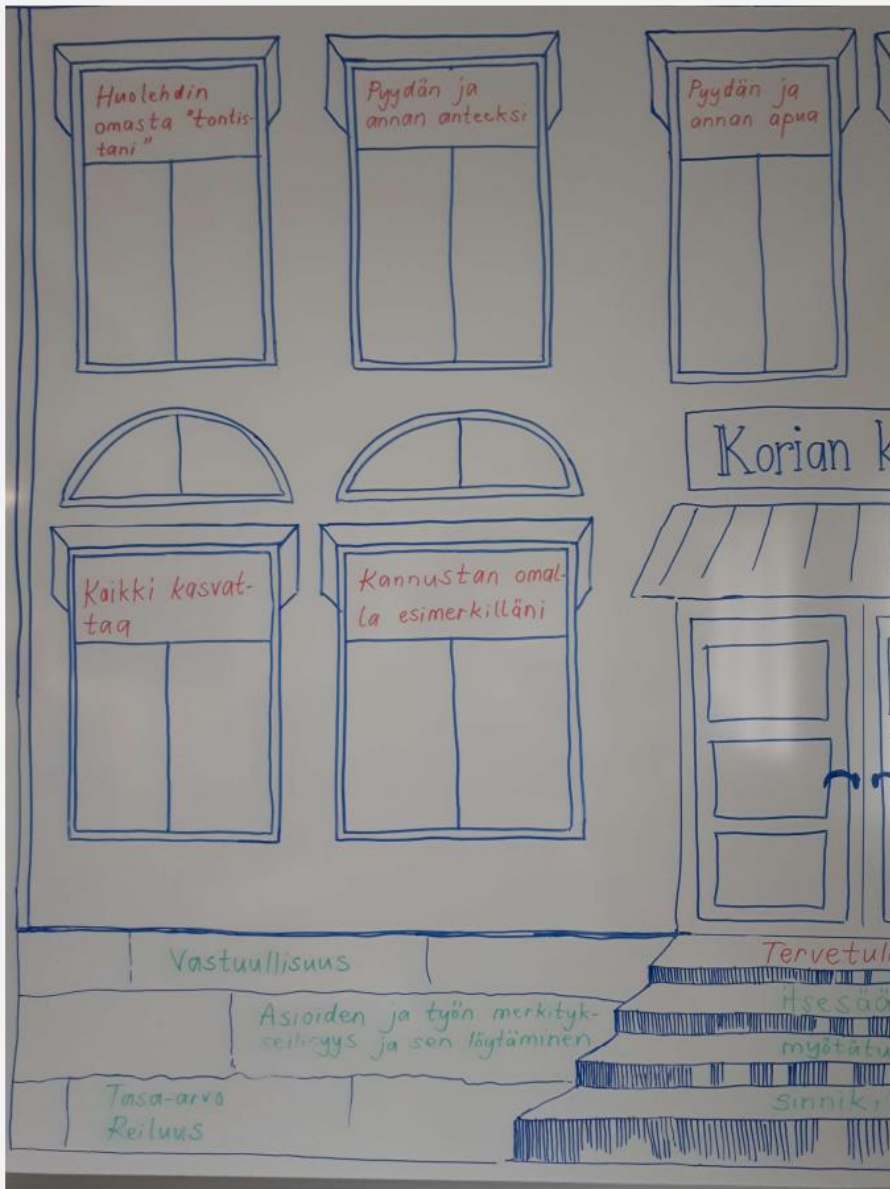 Huolehdin
omasta "tontis-
tani"
Pyydän ja
annan anteeksi
Pyydän ja
annan apua
Korian k
Kaikki kasvat-
taa
Kannustan omal-
la esimerkilläni
Vastuullisuus
Asioiden ja työn merkityk-
sellisyys ja sen löytäminen
Tasa-arvo
Reiluus
Tervetul
itsesää
myötätu
sinniki